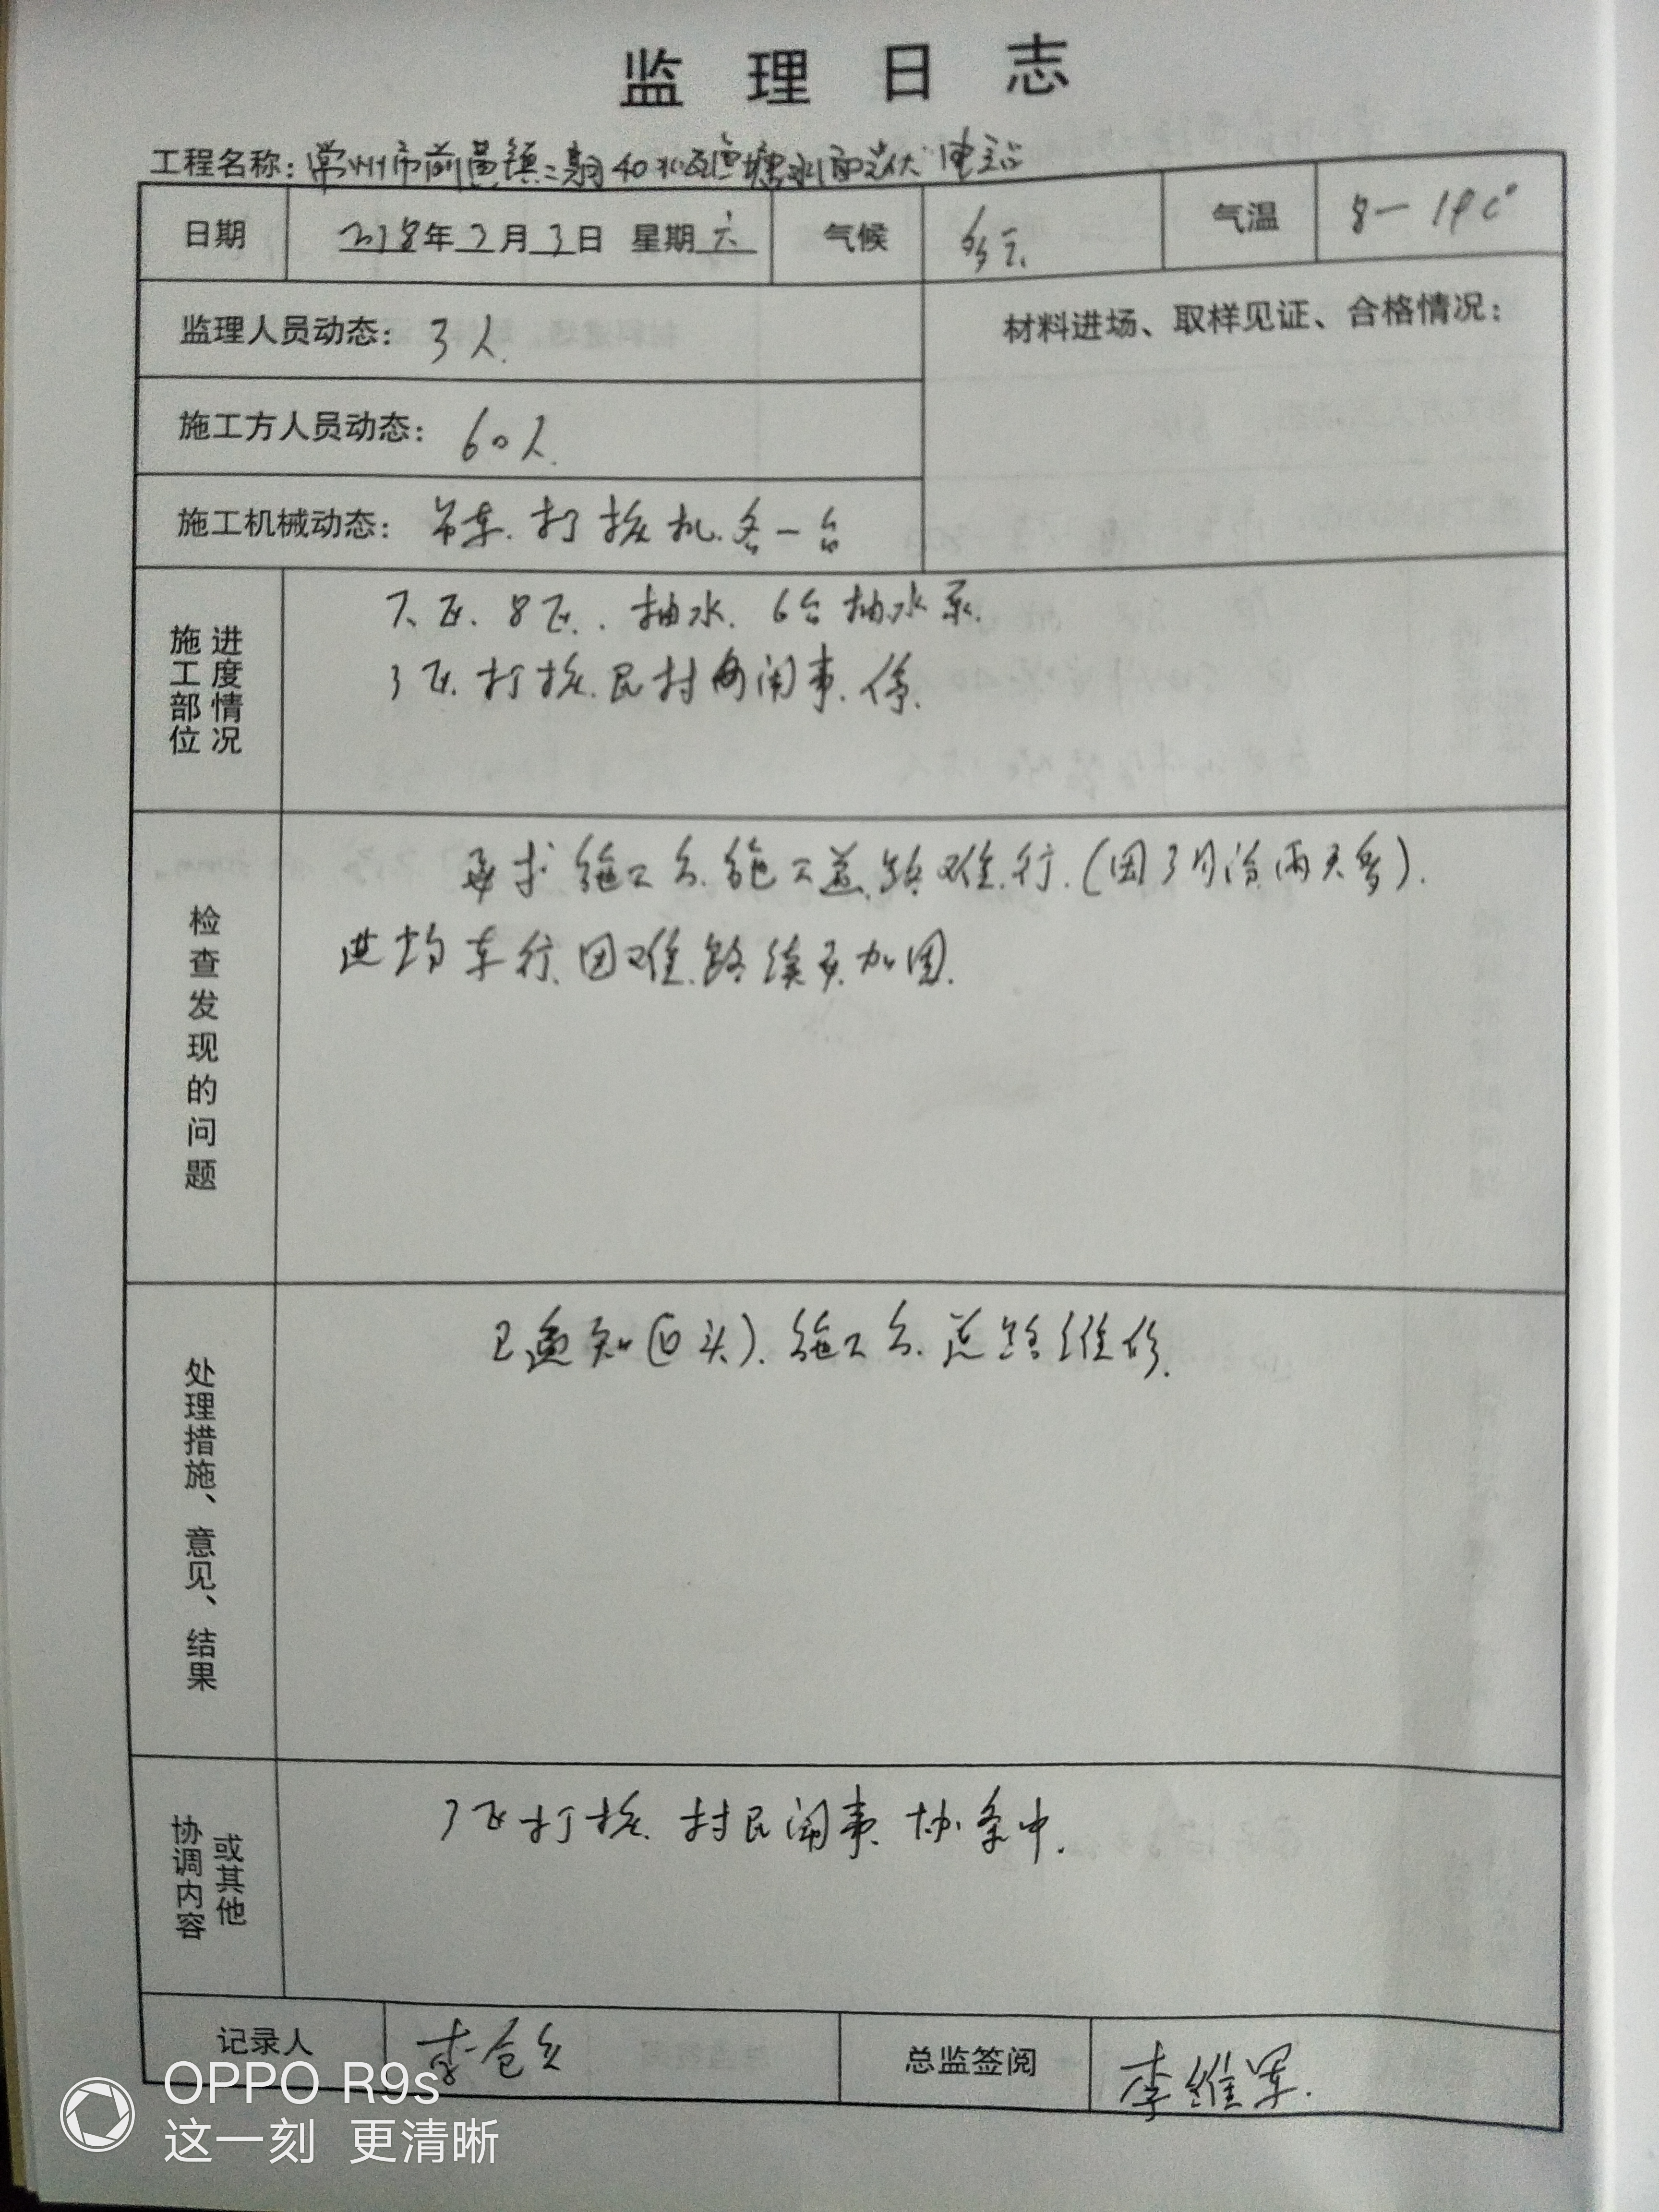 监理日志
工程名称：常州市前黄镇二期40兆瓦鱼塘水面光伏电站
日期 2018年3月3日 星期六 气候 多云 气温 8-19C°
监理人员动态：3人.
材料进场、取样见证、合格情况：
施工方人员动态：60人.
施工机械动态：吊车.打桩机.各一台
施工部位 进度情况
7区.8区.抽水.6台抽水泵.
3区.打桩.民村闹事.停.
检查发现的问题
要求施工方.施工道路难行.(因3月份雨天多).
进场车行困难.路续要加固.
处理措施、意见、结果
已通知(口头).施工方.道路维修.
协调内容 或其他
3区打桩.村民闹事.协条中.
记录人 李 总监签阅 李维军.
OPPO R9s
这一刻 更清晰